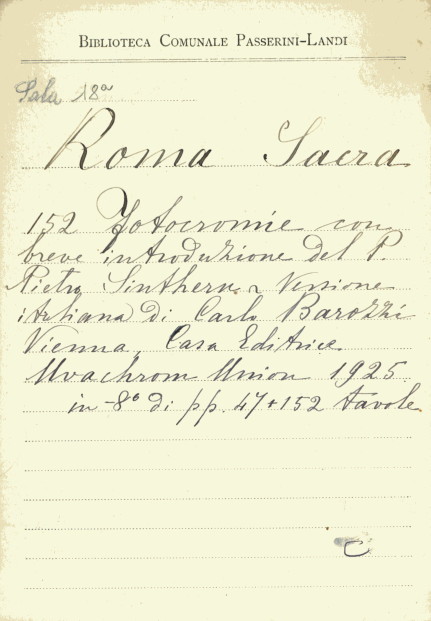 BIBLIOTECA COMUNALE PASSERINI-LANDI
Sala 18a
Roma Sacra
152 Fotocromie con
breve introduzione del P.
Pietro Sinthern. Versione
italiana di Carlo Barozzi
Vienna, Casa Editrice
Uvachrom Union 1925
in -8° di pp. 47+152 tavole
C